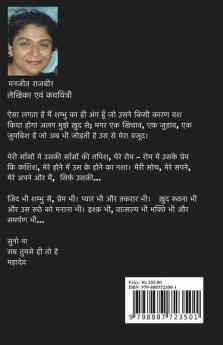 मनजीत राजबीर
लेखिका एवं कवयित्री
ऐसा लगता है मैं शम्भु का ही अंग हूँ जो उसने किसी कारण वश
किया होगा अलग मुझे खुद से; मगर एक खिंचाव, एक जुड़ाव, एक
जुम्बिश है जो अब भी जोड़ती है उस से मेरा वजूद।
मेरी साँसों में उसकी साँसों की तपिश, मेरे रोम - रोम में उसके प्रेम
कि कशिश, मेरे होने में उस के होने का नशा। मेरी सोच, मेरे सपने,
मेरे अपने और मैं, सिर्फ उसकी...
ज़िद भी शम्भु से, प्रेम भी। प्यार भी और तकरार भी। खुद रूठना भी
और उस रूठे को मनाना भी। इश्क़ भी, वात्सल्य भी भक्ति भी और
समर्पण भी...
सुनो ना
सब तुमसे ही तो है
महादेव
Price: Rs 255.00
ISBN 979-888772350-1
9 798887 723501